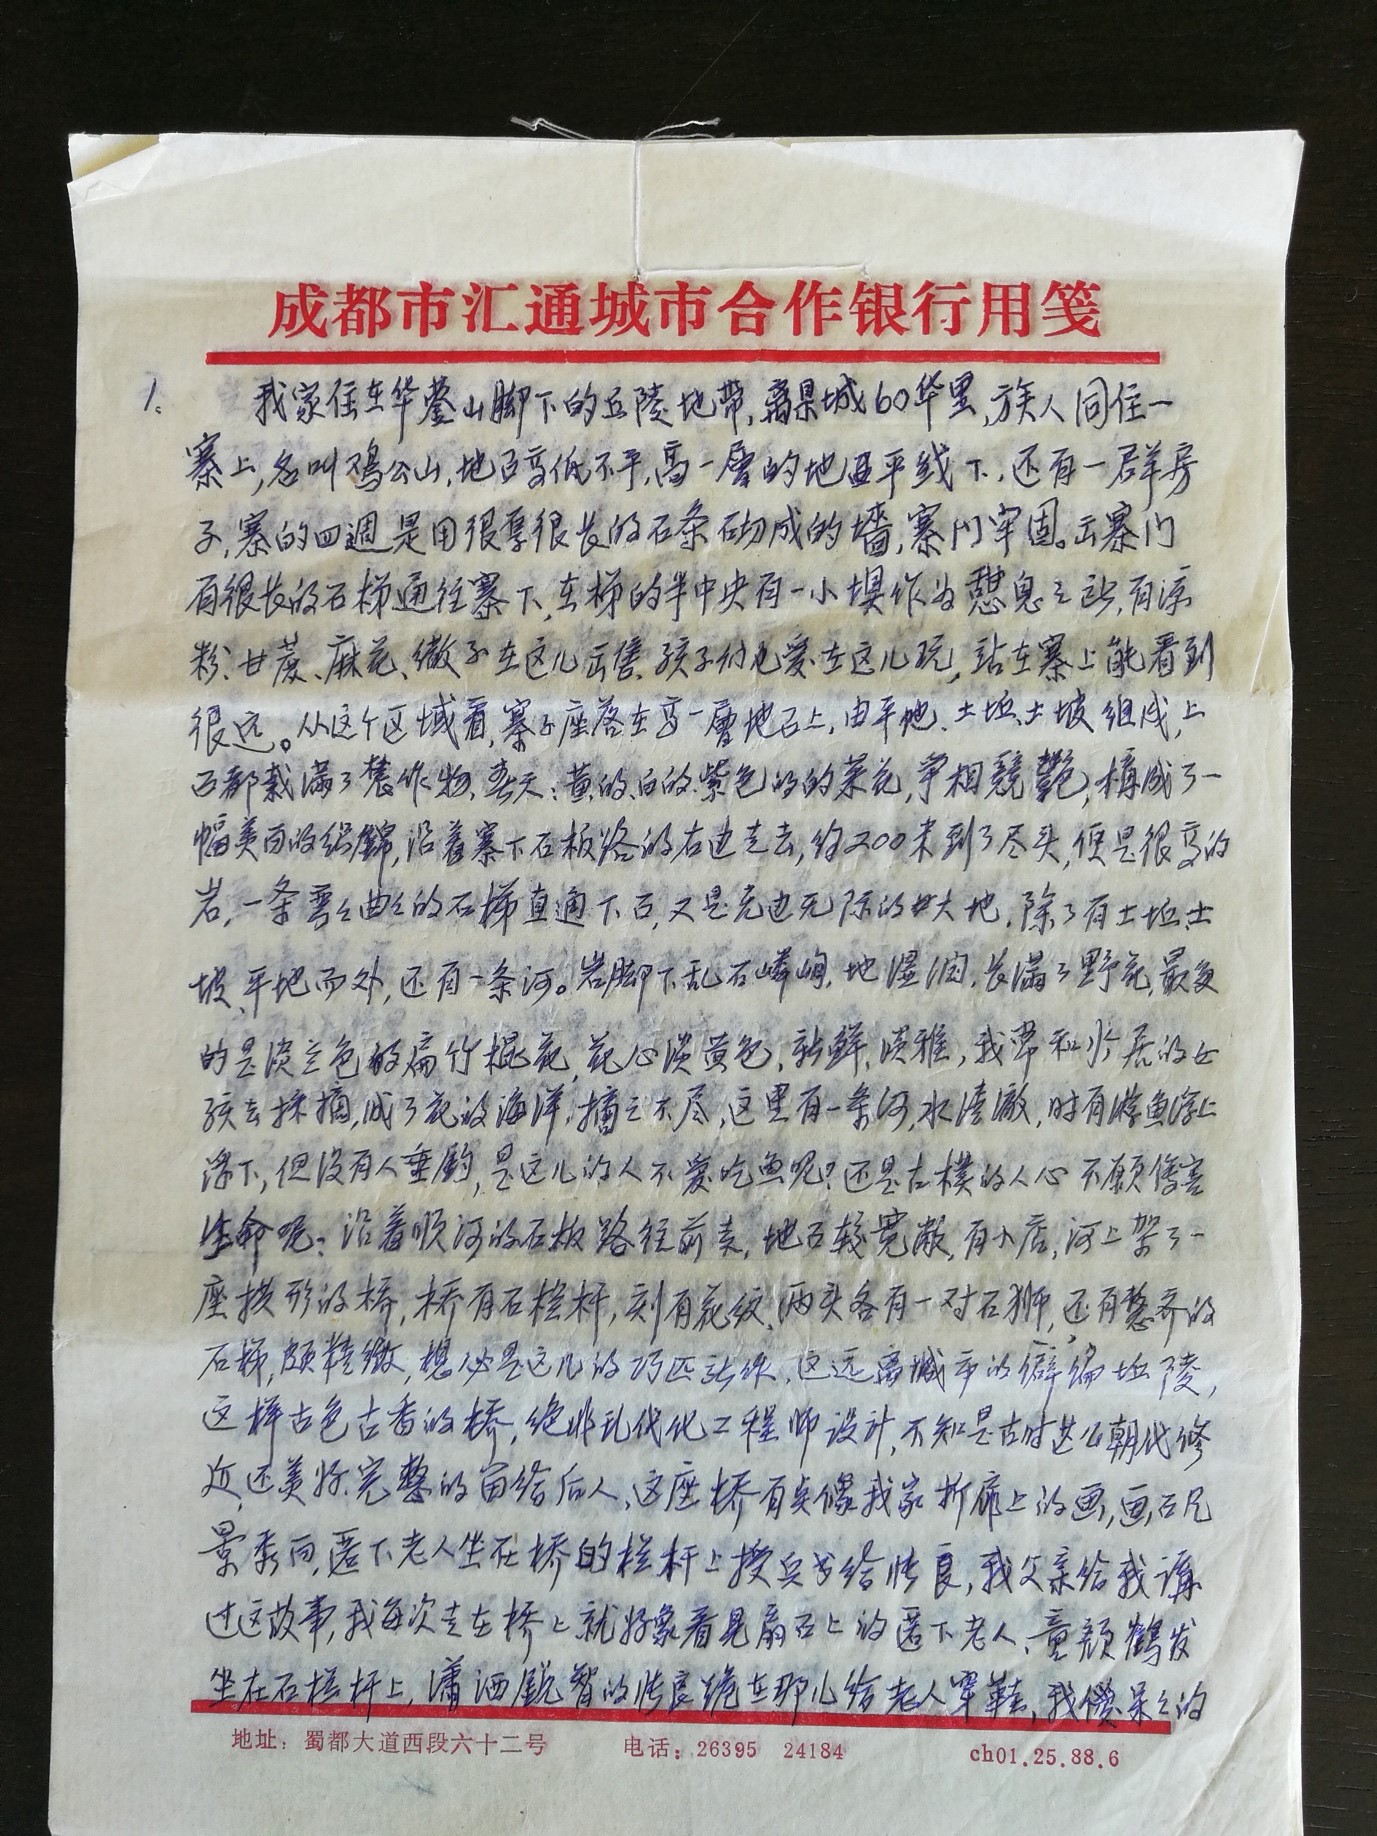 成都市汇通城市合作银行用笺
1。
我家住在华蓥山脚下的丘陵地带,离果城60华里,族人同住一
寨上,名叫鸡公山,地面高低不平,高一层的地面平线下,还有一群房
子,寨的四週是用很厚很长的石条砌成的墙,寨门牢固。出寨门
有很长的石梯通往寨下,在梯的半中央有一小坝作为憩息之所,有凉
粉、甘蔗、麻花、馓子在这儿出售,孩子们也爱在这儿玩,站在寨上能看到
很远。从这个区域看,寨子座落在高一层地面上,由平地、土坵、土坡组成,上
面都栽满了農作物,春天:黄的、白的、紫色的的菜花,争相競艷,構成了一
幅美丽的织錦,沿着寨下石板路的右边走去,约200米到了尽头,但是很高的
岩,一条弯弯曲曲的石梯直通下面,又是无边无际的大地,除了有土坵、土
坡、平地而外,还有一条河。岩脚下乱石嶙峋,地湿润,长满了野花,最多
的是淡兰色的扁竹根花,花心淡黄色,新鲜,淡雅,我常和邻居的女
孩去採摘,成了花的海洋,摘之不尽,这里有一条河,水清澈,时有游鱼浮上
浮下,但没有人垂钓,是这儿的人不爱吃鱼呢?还是古樸的人心不願傷害
生命呢?沿着顺河的石板路往前走,地面较宽敞,有小店,河上架了一
座拱形的桥,桥有石栏杆,刻有花纹,两头各有一对石狮,还有整齐的
石梯,颇精緻,想必是这儿的巧匠所作,这远离城市的僻偏坵陵,
这样古色古香的桥,绝非现代化工程师设计,不知是古时甚么朝代修
还美好完整的留给后人,这座桥有点像我家折扇上的画,画面风
景秀丽,圯下老人坐在桥的栏杆上授兵书给张良,我父亲给我讲
过这故事,我每次走在桥上就好象看見扇面上的圯下老人、童颜鹤发
坐在石栏杆上,瀟洒睿智的张良跪在那儿给老人穿鞋,我儍呆呆的
地址：蜀都大道西段六十二号 电话：26395 24184 ch01.25.88.6